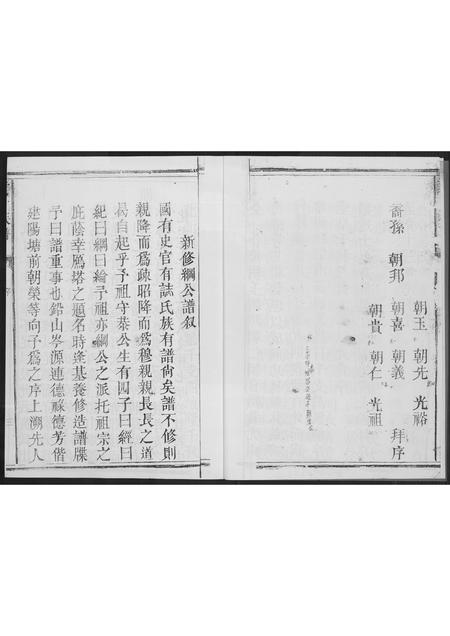 朝玉　朝先　光裕
裔孫　朝邦　朝喜　朝義　拜序
朝貴　朝仁　光祖
新修綱公譜叙
國有史官有誌氏族有譜尙矣譜不修則
親降而爲疎昭降而爲穆親親長長之道
曷自起乎予祖守恭公生有四子曰經曰
紀曰綱曰綸予祖亦綱公之派托祖宗之
庇蔭幸鴈塔之題名時逢基養修造譜牒
予曰譜重事也鉛山岑源連德祿德芳偕
建陽塘前朝榮等向予爲之序上溯先人